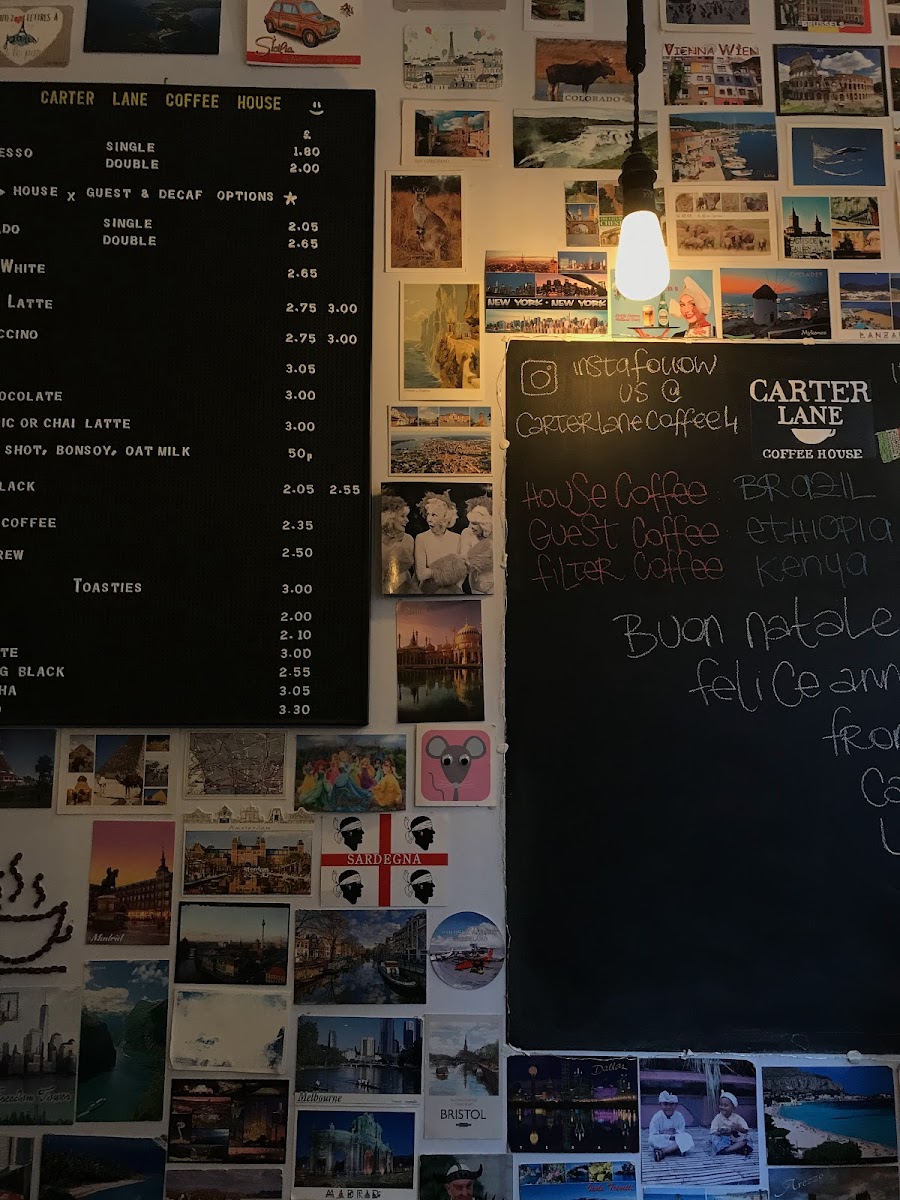 CARTER LANE COFFEE HOUSE
£
ESSO SINGLE 1.80
DOUBLE 2.00
HOUSE x GUEST & DECAF OPTIONS
DO SINGLE 2.05
DOUBLE 2.65
WHITE 2.65
LATTE 2.75 3.00
CCINO 2.75 3.00
3.05
OCOLATE 3.00
IC OR CHAI LATTE 3.00
SHOT, BONSOY, OAT MILK 50p
LACK 2.05 2.55
COFFEE 2.35
REW 2.50
TOASTIES 3.00
2.00
2.10
TE 3.00
G BLACK 2.55
HA 3.05
3.30
instafollow
us @
carterlanecoffee4
CARTER
LANE
COFFEE HOUSE
House Coffee: BRAZIL
Guest Coffee: ETHIOPIA
filter Coffee: Kenya
Buon natale
felice ann
fro
Ca
L
Sicilia
COLORADO
VIENNA WIEN
BRUSSELS
NEW YORK - NEW YORK
Mykonos
LANZA
Amsterdam
SARDEGNA
Madrid
Freedom Tower
Melbourne
BRISTOL
MADRID
Dallas